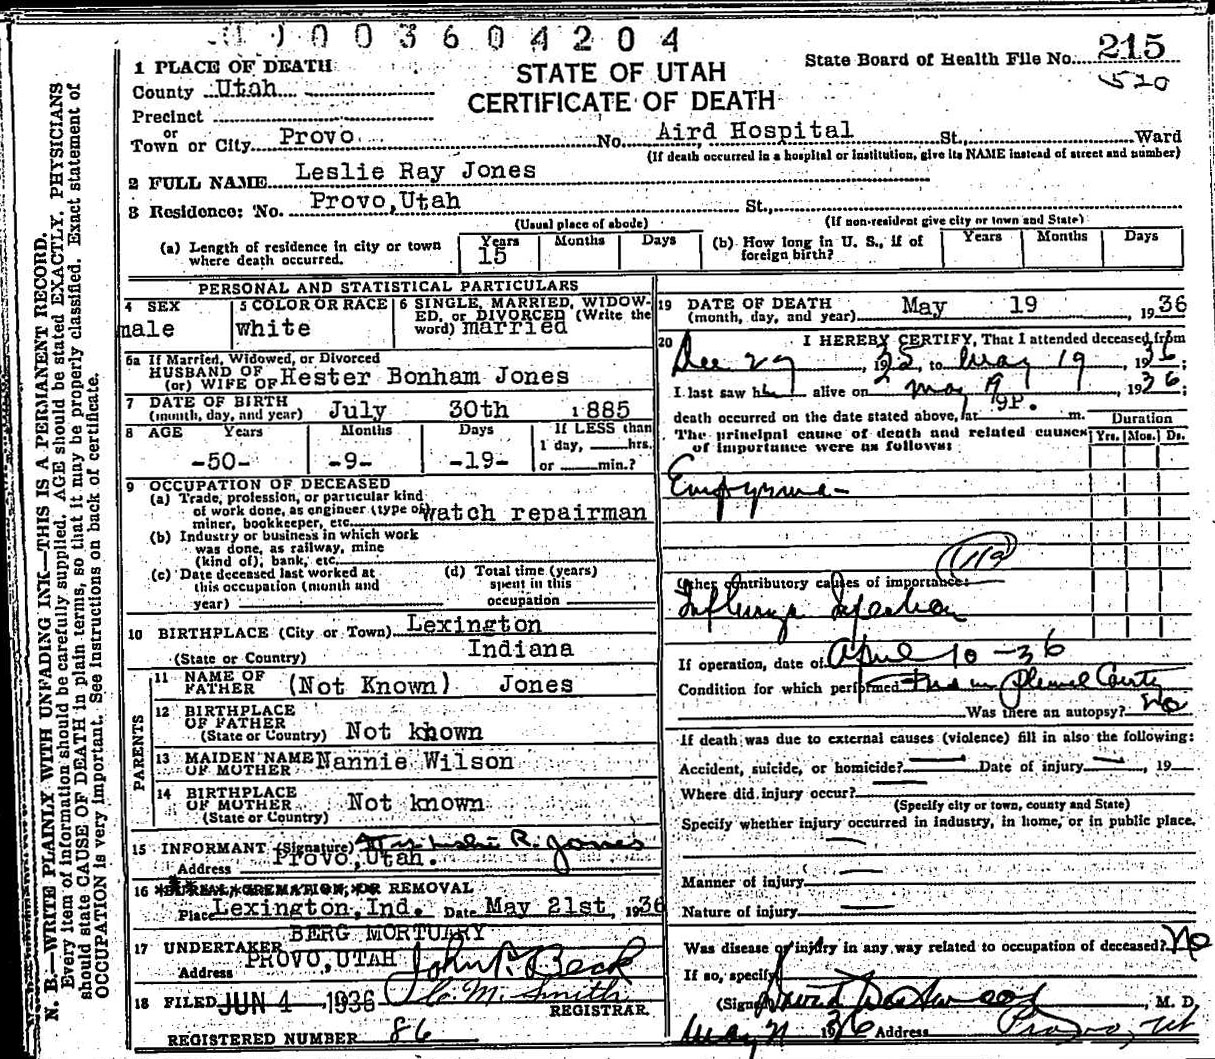 003604204
State Board of Health File No. 215
520
STATE OF UTAH
CERTIFICATE OF DEATH
1 PLACE OF DEATH
County Utah
Precinct
or
Town or City Provo No. Aird Hospital St., Ward
(If death occurred in a hospital or institution, give its NAME instead of street and number)
2 FULL NAME Leslie Ray Jones
3 Residence: No. Provo, Utah St.,
(Usual place of abode) (If non-resident give city or town and State)
(a) Length of residence in city or town where death occurred. Years 15 Months Days
(b) How long in U. S., if of foreign birth? Years Months Days
PERSONAL AND STATISTICAL PARTICULARS
4 SEX male
5 COLOR OR RACE white
6 SINGLE, MARRIED, WIDOWED, or DIVORCED (Write the word) married
6a If Married, Widowed, or Divorced
HUSBAND OF
(or) WIFE OF Hester Bonham Jones
7 DATE OF BIRTH
(month, day, and year) July 30th 1885
8 AGE Years Months Days If LESS than
1 day, hrs.
-50- -9- -19- or min.?
9 OCCUPATION OF DECEASED
(a) Trade, profession, or particular kind
of work done, as engineer (type of
miner, bookkeeper, etc. watch repairman
(b) Industry or business in which work
was done, as railway, mine
(kind of), bank, etc.
(c) Date deceased last worked at
this occupation (month and
year)
(d) Total time (years)
spent in this
occupation
10 BIRTHPLACE (City or Town) Lexington
(State or Country) Indiana
PARENTS
11 NAME OF
FATHER (Not Known) Jones
12 BIRTHPLACE
OF FATHER
(State or Country) Not known
13 MAIDEN NAME
OF MOTHER Nannie Wilson
14 BIRTHPLACE
OF MOTHER
(State or Country) Not known
15 INFORMANT (Signature) Mrs Leslie R. Jones
Address Provo, Utah.
16 BURIAL, CREMATION, OR REMOVAL
Place Lexington, Ind. Date May 21st, 1936
17 UNDERTAKER BERG MORTUARY
Address PROVO, UTAH
John P. Beck
18 FILED JUN 4 1936 C. M. Smith
REGISTRAR.
REGISTERED NUMBER 86
19 DATE OF DEATH
(month, day, and year) May 19, 1936
20 I HEREBY CERTIFY, That I attended deceased from
Dec 27, 1935, to May 19, 1936;
I last saw him alive on May 19, 1936;
death occurred on the date stated above, at 9P. m.
The principal cause of death and related causes
of importance were as follows:
Duration
Yrs. Mos. Ds.
Empyema
Other contributory causes of importance:
Influenza Infection
If operation, date of April 10-36
Condition for which performed Pleural Cavity
Was there an autopsy? No
If death was due to external causes (violence) fill in also the following:
Accident, suicide, or homicide? Date of injury, 19
Where did injury occur?
(Specify city or town, county and State)
Specify whether injury occurred in industry, in home, or in public place.
Manner of injury
Nature of injury
Was disease or injury in any way related to occupation of deceased? No
If so, specify
(Signed) David Westwood, M. D.
May 21 1936 Address Provo, Ut
N. B.—WRITE PLAINLY WITH UNFADING INK—THIS IS A PERMANENT RECORD.
Every item of information should be carefully supplied. AGE should be stated EXACTLY. PHYSICIANS
should state CAUSE OF DEATH in plain terms, so that it may be properly classified. Exact statement of
OCCUPATION is very important. See instructions on back of certificate.